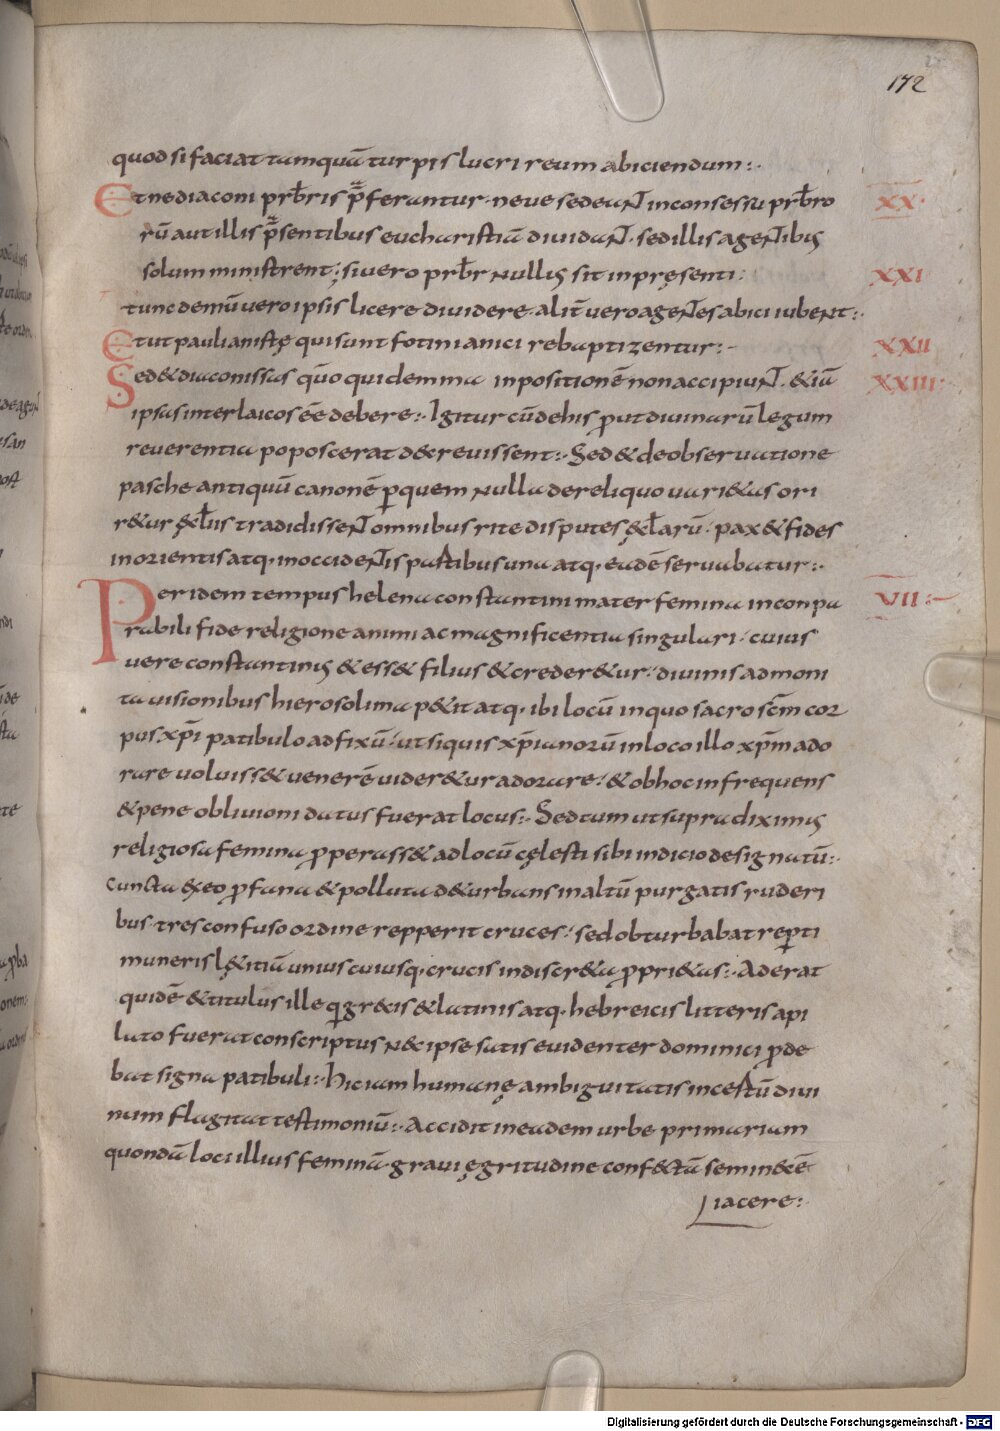 172
quod si faciat tamquā turpis lucri reum abiciendum:·
Et ne diaconi prƀris p̄ferantur· neve sedeaNT in consessu prƀro XX·
rū aut illis p̄sentibus eucharistiā dividaNT· sed illis ageNTibus
solum ministrent; si vero prƀr nullus sit in pręsenti· XXI
tunc demū vero ipsis licere dividere· alit̄ vero ageNTes abici iubeNT:·
Et ut paulianistę qui sunt fotinianici rebaptizentur:· XXII
Sed & diaconissas qūo quidem ma inpositionē non accipiuNT· & iā XXIII·
ipsas inter laicos ēē debere:· Igitur cū de his ꝓut divinarū legum
reverentia poposcerat decrevissent:· Sed & de observatione
pasche antiquū canonē ꝑquem nulla de reliquo vari&as ori
r&ur ęcl̄iis tradidisseNT omnibus rite disputes ęcl̄arū· pax & fides
in orientis atq· in occideNTis partibus una atq· eadē servabatur:·
Per idem tempus helena constantini mater femina inconpa VII:·
rabili fide religione animi ac magnificentia singulari· cuius
vere constantinus & ess& filius & creder&ur· divinis admoni
ta visionibus hierosolima p&it atq· ibi locū in quo sacro sc̄m cor
pus xp̄i patibulo adfixū· ut siquis xp̄ianorū in loco illo xp̄m ado
rare voluiss& venerē vider&ur adorare· & ob hoc infrequens
& pene oblivioni datus fuerat locus:· Sed tum ut supra diximus
religiosa femina ꝓperass& ad locū cęlesti sibi indicio designatū:·
cuncta ex eo ꝓfana & polluta d&urbans in altū purgatis ruderi
bus· tres confuso ordine repperit cruces· sed obturbabat reꝑti
muneris lętitiā unius cuiusq· crucis indiscr&a ꝓpri&as:· Aderat
quidē & titulus ille qi gr&cis & latinis atq· hebreicis litteris a pi
lato fuerat conscriptus n&c ipse satis evidenter dominici ꝓde
bat signa patibuli:· hic iam humanę ambiguitatis incertū divi
num flagitat testimoniū:· Accidit in eadem urbe primariam
quondā loci illius feminā gravi ęgritudine conf&ctā semin&cē
iacere:·
Digitalisierung gefördert durch die Deutsche Forschungsgemeinschaft - DFG